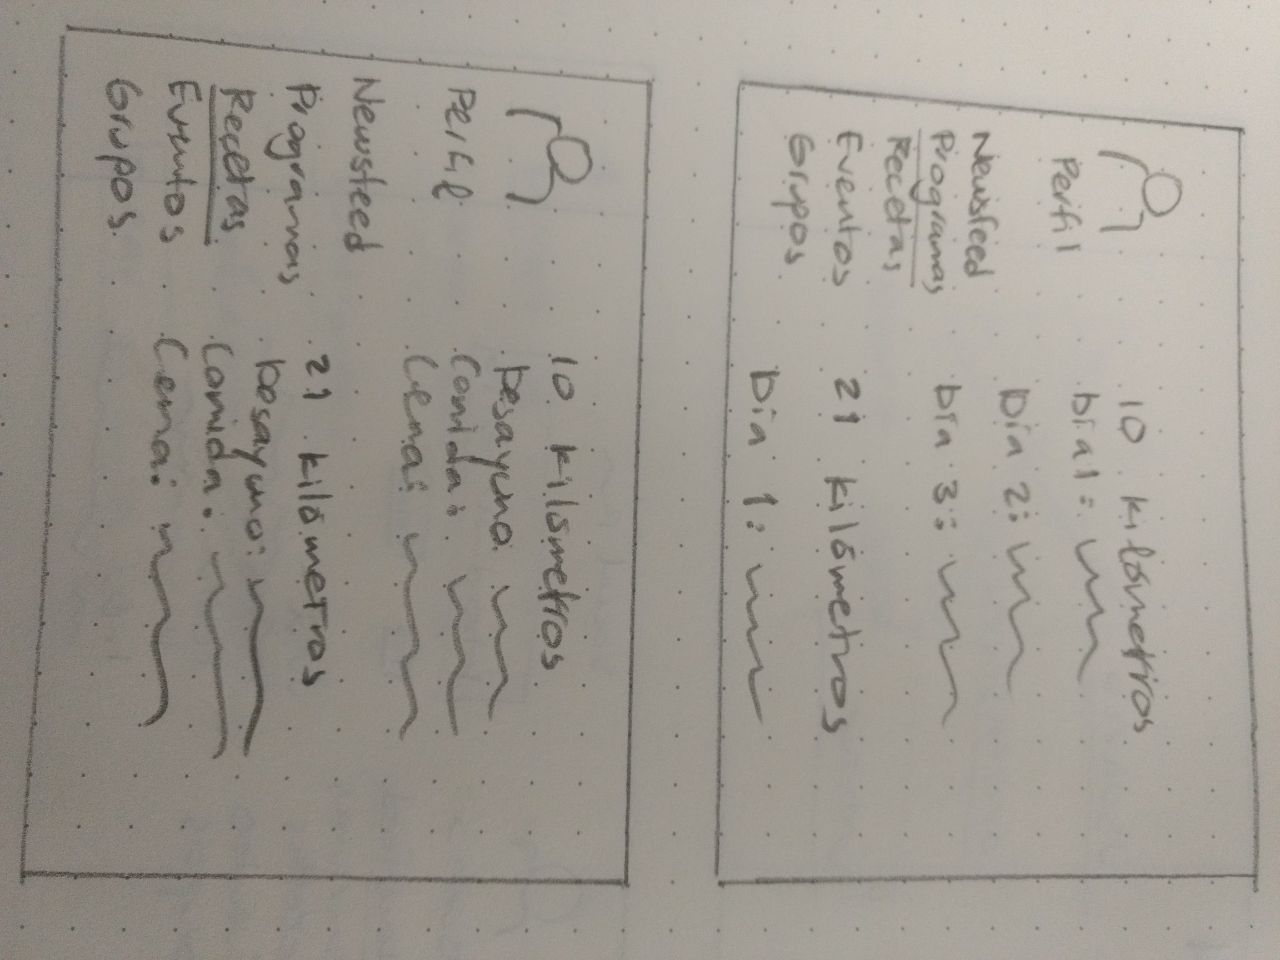 Perfil
Newsfeed
Programas
Recetas
Eventos
Grupos
10 kilómetros
Día 1:
Día 2:
Día 3:
21 kilómetros
Día 1:
Perfil
Newsfeed
Programas
Recetas
Eventos
Grupos
10 kilómetros
Desayuno
Comida:
Cena:
21 kilómetros
Desayuno:
Comida:
Cena: